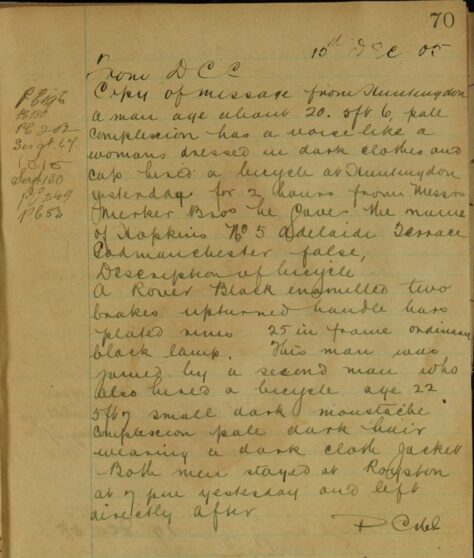 70
10th Dec 05
From D C C
Copy of message from Huntingdon
a man age about 20. 5ft 6, pale
complexion has a voice like a
womans dressed in dark clothes and
cap hired a bicycle at Huntingdon
yesterday for 2 hours from Messrs
Murker Bros he gave the name
of Hopkins No 5 Adelaide Terrace
Godmanchester false,
Description of bicycle
A Rover Black enamelled two
brakes upturned handle bars
plated rims 25 in frame ordinary
black lamp. This man was
joined by a second man who
also hired a bicycle age 22
5ft 7 small dark moustache
complexion pale dark hair
wearing a dark cloth Jackett
Both men stayed at Royston
at 7 pm yesterday and left
directly after
PC 202
Sergt. 67
Sergt 180
PC 249
P 683